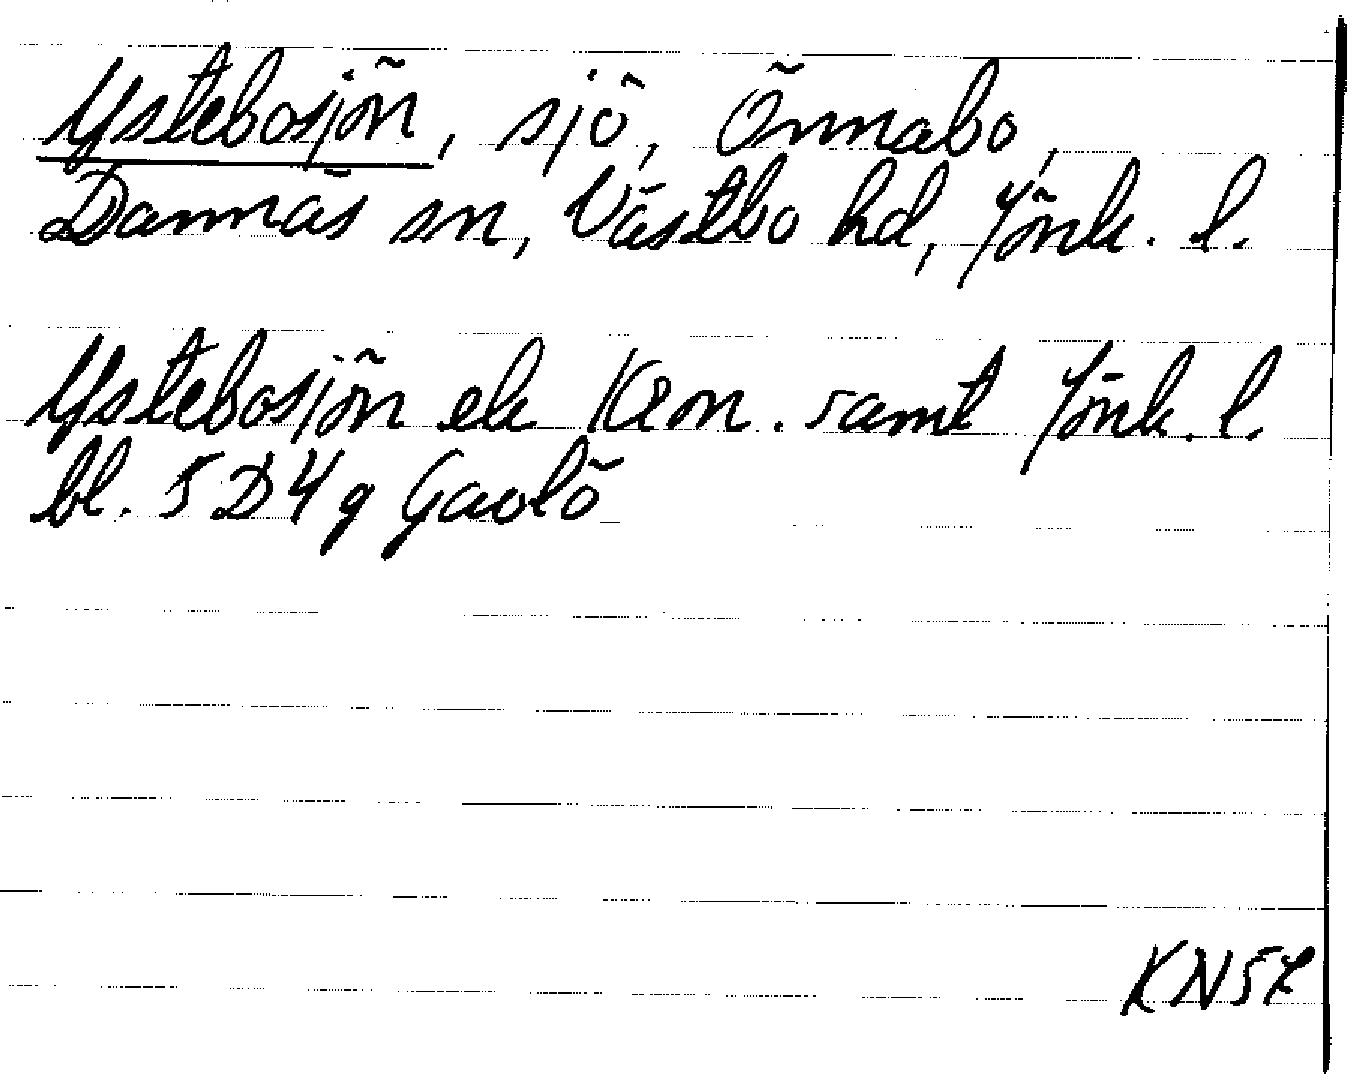 Ystebosjön, sjö, Önnabo,
Dannäs sn, Västbo hd, Jönk. l.
Ystebosjön ek Kron. samt Jönk. l.
bl. 5D4g Gavlö
KN57